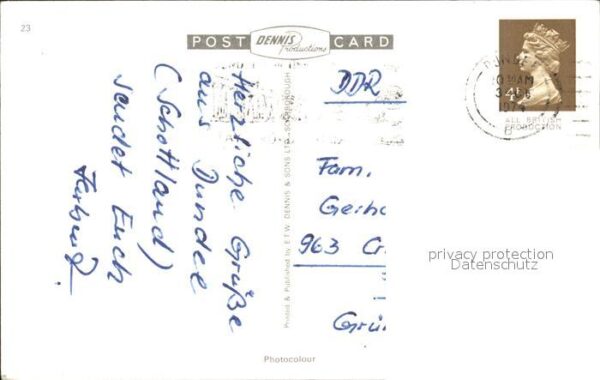 23
POST DENNIS Productions CARD
Herzliche Grüße
aus Dundee
(Schottland)
sendet Euch
DDR
Fam.
Gerha
963 Cr
Grü
4P
DUNDEE
10 30 AM
1974
B
ALL BRITISH
PRODUCTION
Printed & Published by E.T.W. DENNIS & SONS LTD., SCARBOROUGH
Photocolour
privacy protection
Datenschutz